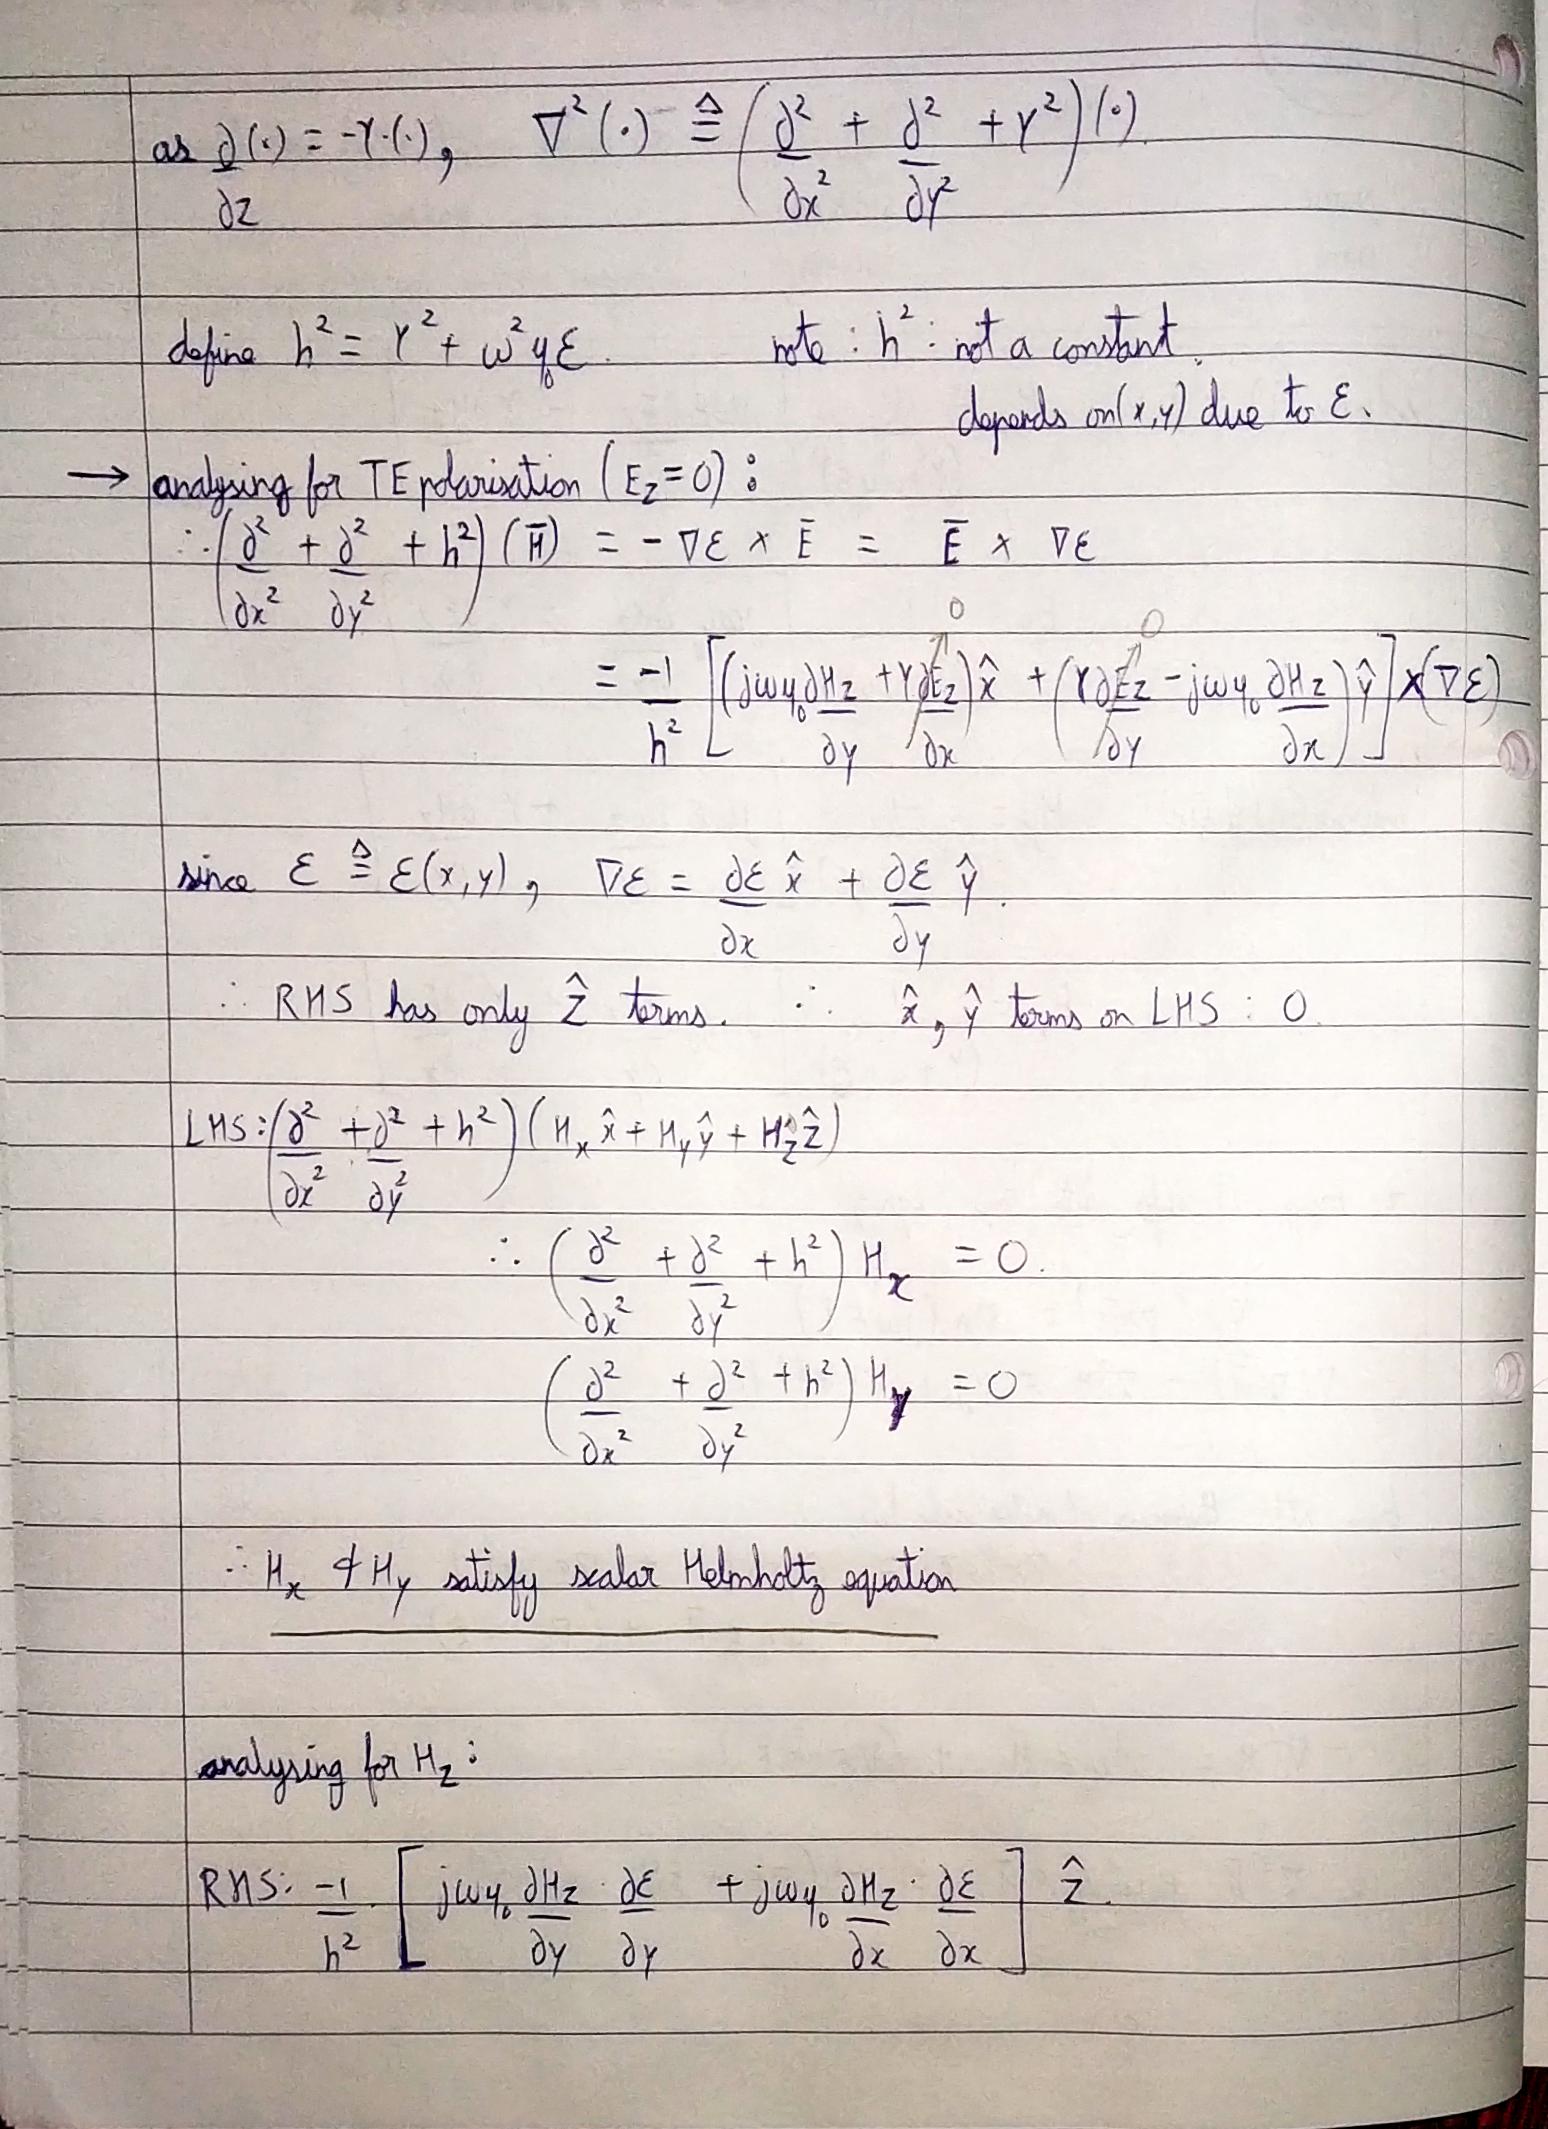 as ∂(·)/∂z = -γ·(·), ∇²(·) ≜ (∂²/∂x² + ∂²/∂y² + γ²)(·).
define h² = γ² + ω²μ₀ε. note : h² : not a constant.
depends on (x,y) due to ε.
→ analysing for TE polarisation (E_z = 0) :
∴ (∂²/∂x² + ∂²/∂y² + h²)(H̄) = - ∇ε × Ē = Ē × ∇ε
= -1/h² [(jωμ₀ ∂H_z/∂y + γ ∂E_z/∂x ↗0) x̂ + (γ ∂E_z/∂y ↗0 - jωμ₀ ∂H_z/∂x) ŷ] × (∇ε)
since ε ≜ ε(x,y), ∇ε = ∂ε/∂x x̂ + ∂ε/∂y ŷ.
∴ RHS has only ẑ terms. ∴ x̂, ŷ terms on LHS : 0.
LHS: (∂²/∂x² + ∂²/∂y² + h²)(H_x x̂ + H_y ŷ + H_z ẑ)
∴ (∂²/∂x² + ∂²/∂y² + h²) H_x = 0.
(∂²/∂x² + ∂²/∂y² + h²) H_y = 0
∴ H_x & H_y satisfy scalar Helmholtz equation
analysing for H_z :
RHS: -1/h² · [jωμ₀ ∂H_z/∂y · ∂ε/∂y + jωμ₀ ∂H_z/∂x · ∂ε/∂x] ẑ.